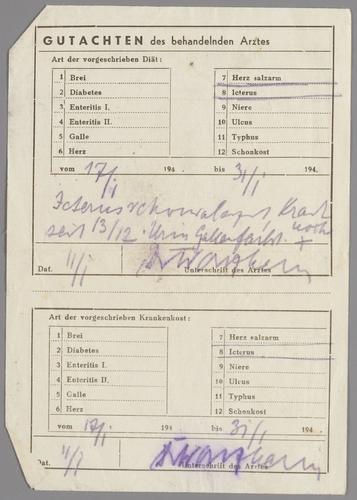 GUTACHTEN des behandelnden Arztes
Art der vorgeschrieben Diät:
1 Brei
2 Diabetes
3 Enteritis I.
4 Enteritis II.
5 Galle
6 Herz
7 Herz salzarm
8 Icterus
9 Niere
10 Ulcus
11 Typhus
12 Schonkost
vom 17/I 194 . bis 31/I 194 .
Icterus
seit 13/12. Urin noch
Dat. 11/I Unterschrift des Arztes
Art der vorgeschrieben Krankenkost:
1 Brei
2 Diabetes
3 Enteritis I.
4 Enteritis II.
5 Galle
6 Herz
7 Herz salzarm
8 Icterus
9 Niere
10 Ulcus
11 Typhus
12 Schonkost
vom 17/I 194 . bis 31/I 194 .
Dat. 11/I Unterschrift des Arztes